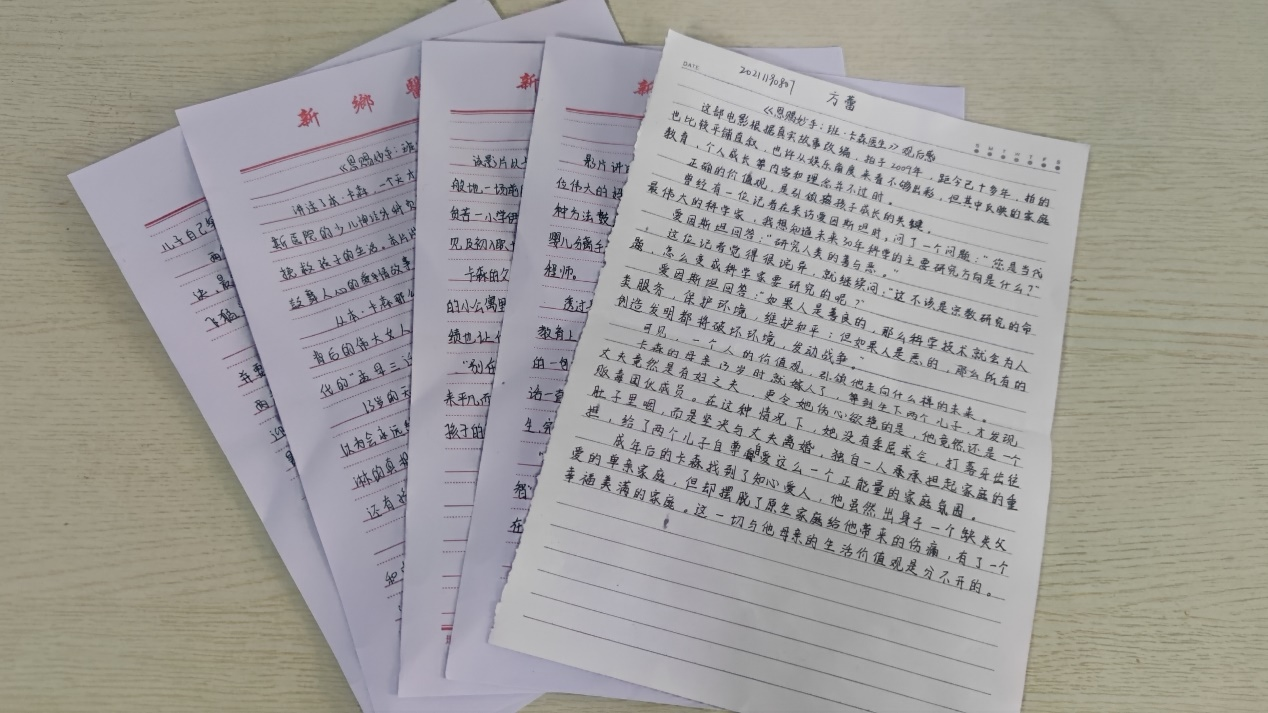 儿子自
新 鄉 醫
《恩赐妙手:
讲述了本·卡森,一个天才
新医院的少儿神经外科
拯救孩子的生活。
鼓舞人心的
从本·卡森
背后的伟大女人
代的"孟母三
13岁的
以为会永远
还有
新
该影片从
般地一场
负苦一小学
见及初入职
卡森的
的小公寓里
绩也让
"别
来平凡而
孩子的
新
影片讲
位伟大的
种方法
婴儿分离手
程师。
透过
教育上
的一
话一
生,
在
DATE 20211190807 方蕾
《恩赐妙手:班·卡森医生》观后感
这部电影根据真实故事改编,拍于2009年,距今已十多年,拍的
也比较平铺直叙,也许从娱乐角度来看不够出彩,但其中反映的家庭
教育,个人成长等内容和理念并不过时。
正确的价值观,是引领孩子成长的关键。
曾经有一位记者在采访爱因斯坦时,问了一个问题:"您是当代
最伟大的科学家,我想知道未来30年科学的主要研究方向是什么?"
爱因斯坦回答:"研究人类的善与恶。"
这位记者觉得很诧异,就继续问:"这不该是宗教研究的命
题,怎么变成科学家要研究的呢?
爱因斯坦回答:"如果人是善良的,那么科学技术就会为人
类服务,保护环境,维护和平;但如果人是恶的,那么所有的
创造发明都将破坏环境,发动战争。"
可见,一个人的价值观,引领他走向什么样的未来。
卡森的母亲13岁时就嫁人了,等到生下两个儿子,才发现
丈夫竟然是有妇之夫,更令她伤心欲绝的是,他竟然还是一个
贩毒团伙成员。在这种情况下,她没有委屈求全,打落牙齿往
肚子里咽,而是坚决与丈夫离婚,独自一人来承担起家庭的重
担,给了两个儿子自尊自爱这么一个正能量的家庭氛围。
成年后的卡森找到了知心爱人,他虽然出身于一个缺失父
爱的单亲家庭,但却摆脱了原生家庭给他带来的伤痛,有了一个
幸福美满的家庭。这一切与他母亲的生活价值观是分不开的。